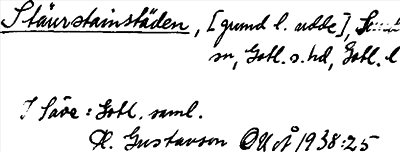 Stäurstainstäden, [grund l. udde],
sn, Gotl. s. hd, Gotl. l
I Säve: Gotl. saml.
H. Gustavson OUÅ 1938:25